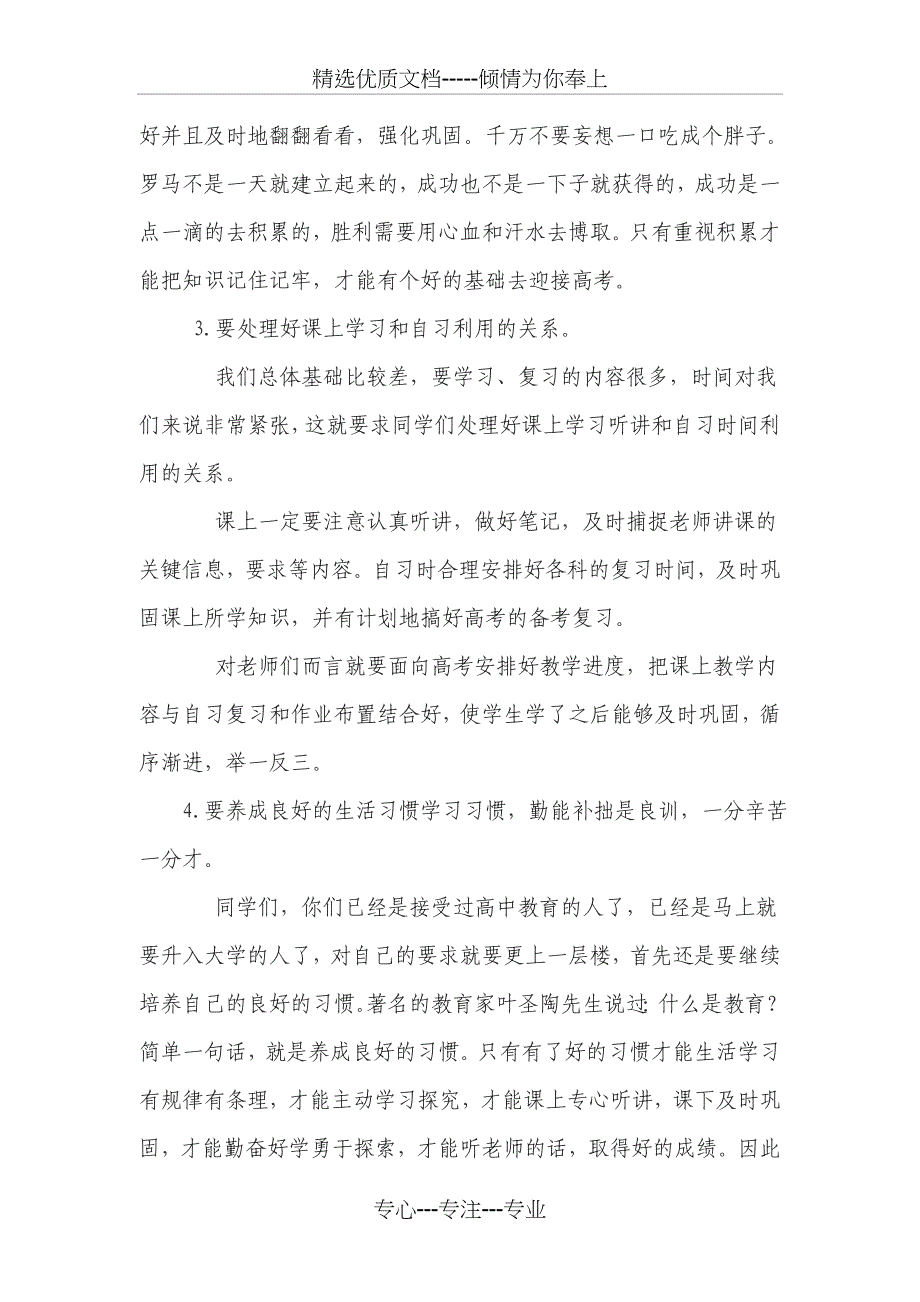 精选优质文档-----倾情为你奉上
好并且及时地翻翻看看，强化巩固。千万不要妄想一口吃成个胖子。
罗马不是一天就建立起来的，成功也不是一下子就获得的，成功是一
点一滴的去积累的，胜利需要用心血和汗水去博取。只有重视积累才
能把知识记住记牢，才能有个好的基础去迎接高考。
3.要处理好课上学习和自习利用的关系。
我们总体基础比较差，要学习、复习的内容很多，时间对我
们来说非常紧张，这就要求同学们处理好课上学习听讲和自习时间利
用的关系。
课上一定要注意认真听讲，做好笔记，及时捕捉老师讲课的
关键信息，要求等内容。自习时合理安排好各科的复习时间，及时巩
固课上所学知识，并有计划地搞好高考的备考复习。
对老师们而言就要面向高考安排好教学进度，把课上教学内
容与自习复习和作业布置结合好，使学生学了之后能够及时巩固，循
序渐进，举一反三。
4.要养成良好的生活习惯学习习惯，勤能补拙是良训，一分辛苦
一分才。
同学们，你们已经是接受过高中教育的人了，已经是马上就
要升入大学的人了，对自己的要求就要更上一层楼，首先还是要继续
培养自己的良好的习惯。著名的教育家叶圣陶先生说过：什么是教育？
简单一句话，就是养成良好的习惯。只有有了好的习惯才能生活学习
有规律有条理，才能主动学习探究，才能课上专心听讲，课下及时巩
固，才能勤奋好学勇于探索，才能听老师的话，取得好的成绩。因此
专心---专注---专业